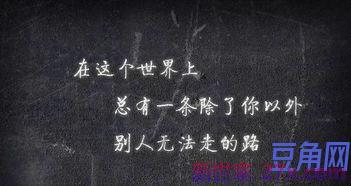 在这个世界上
总有一条除了你以外
别人无法走的路
豆角网